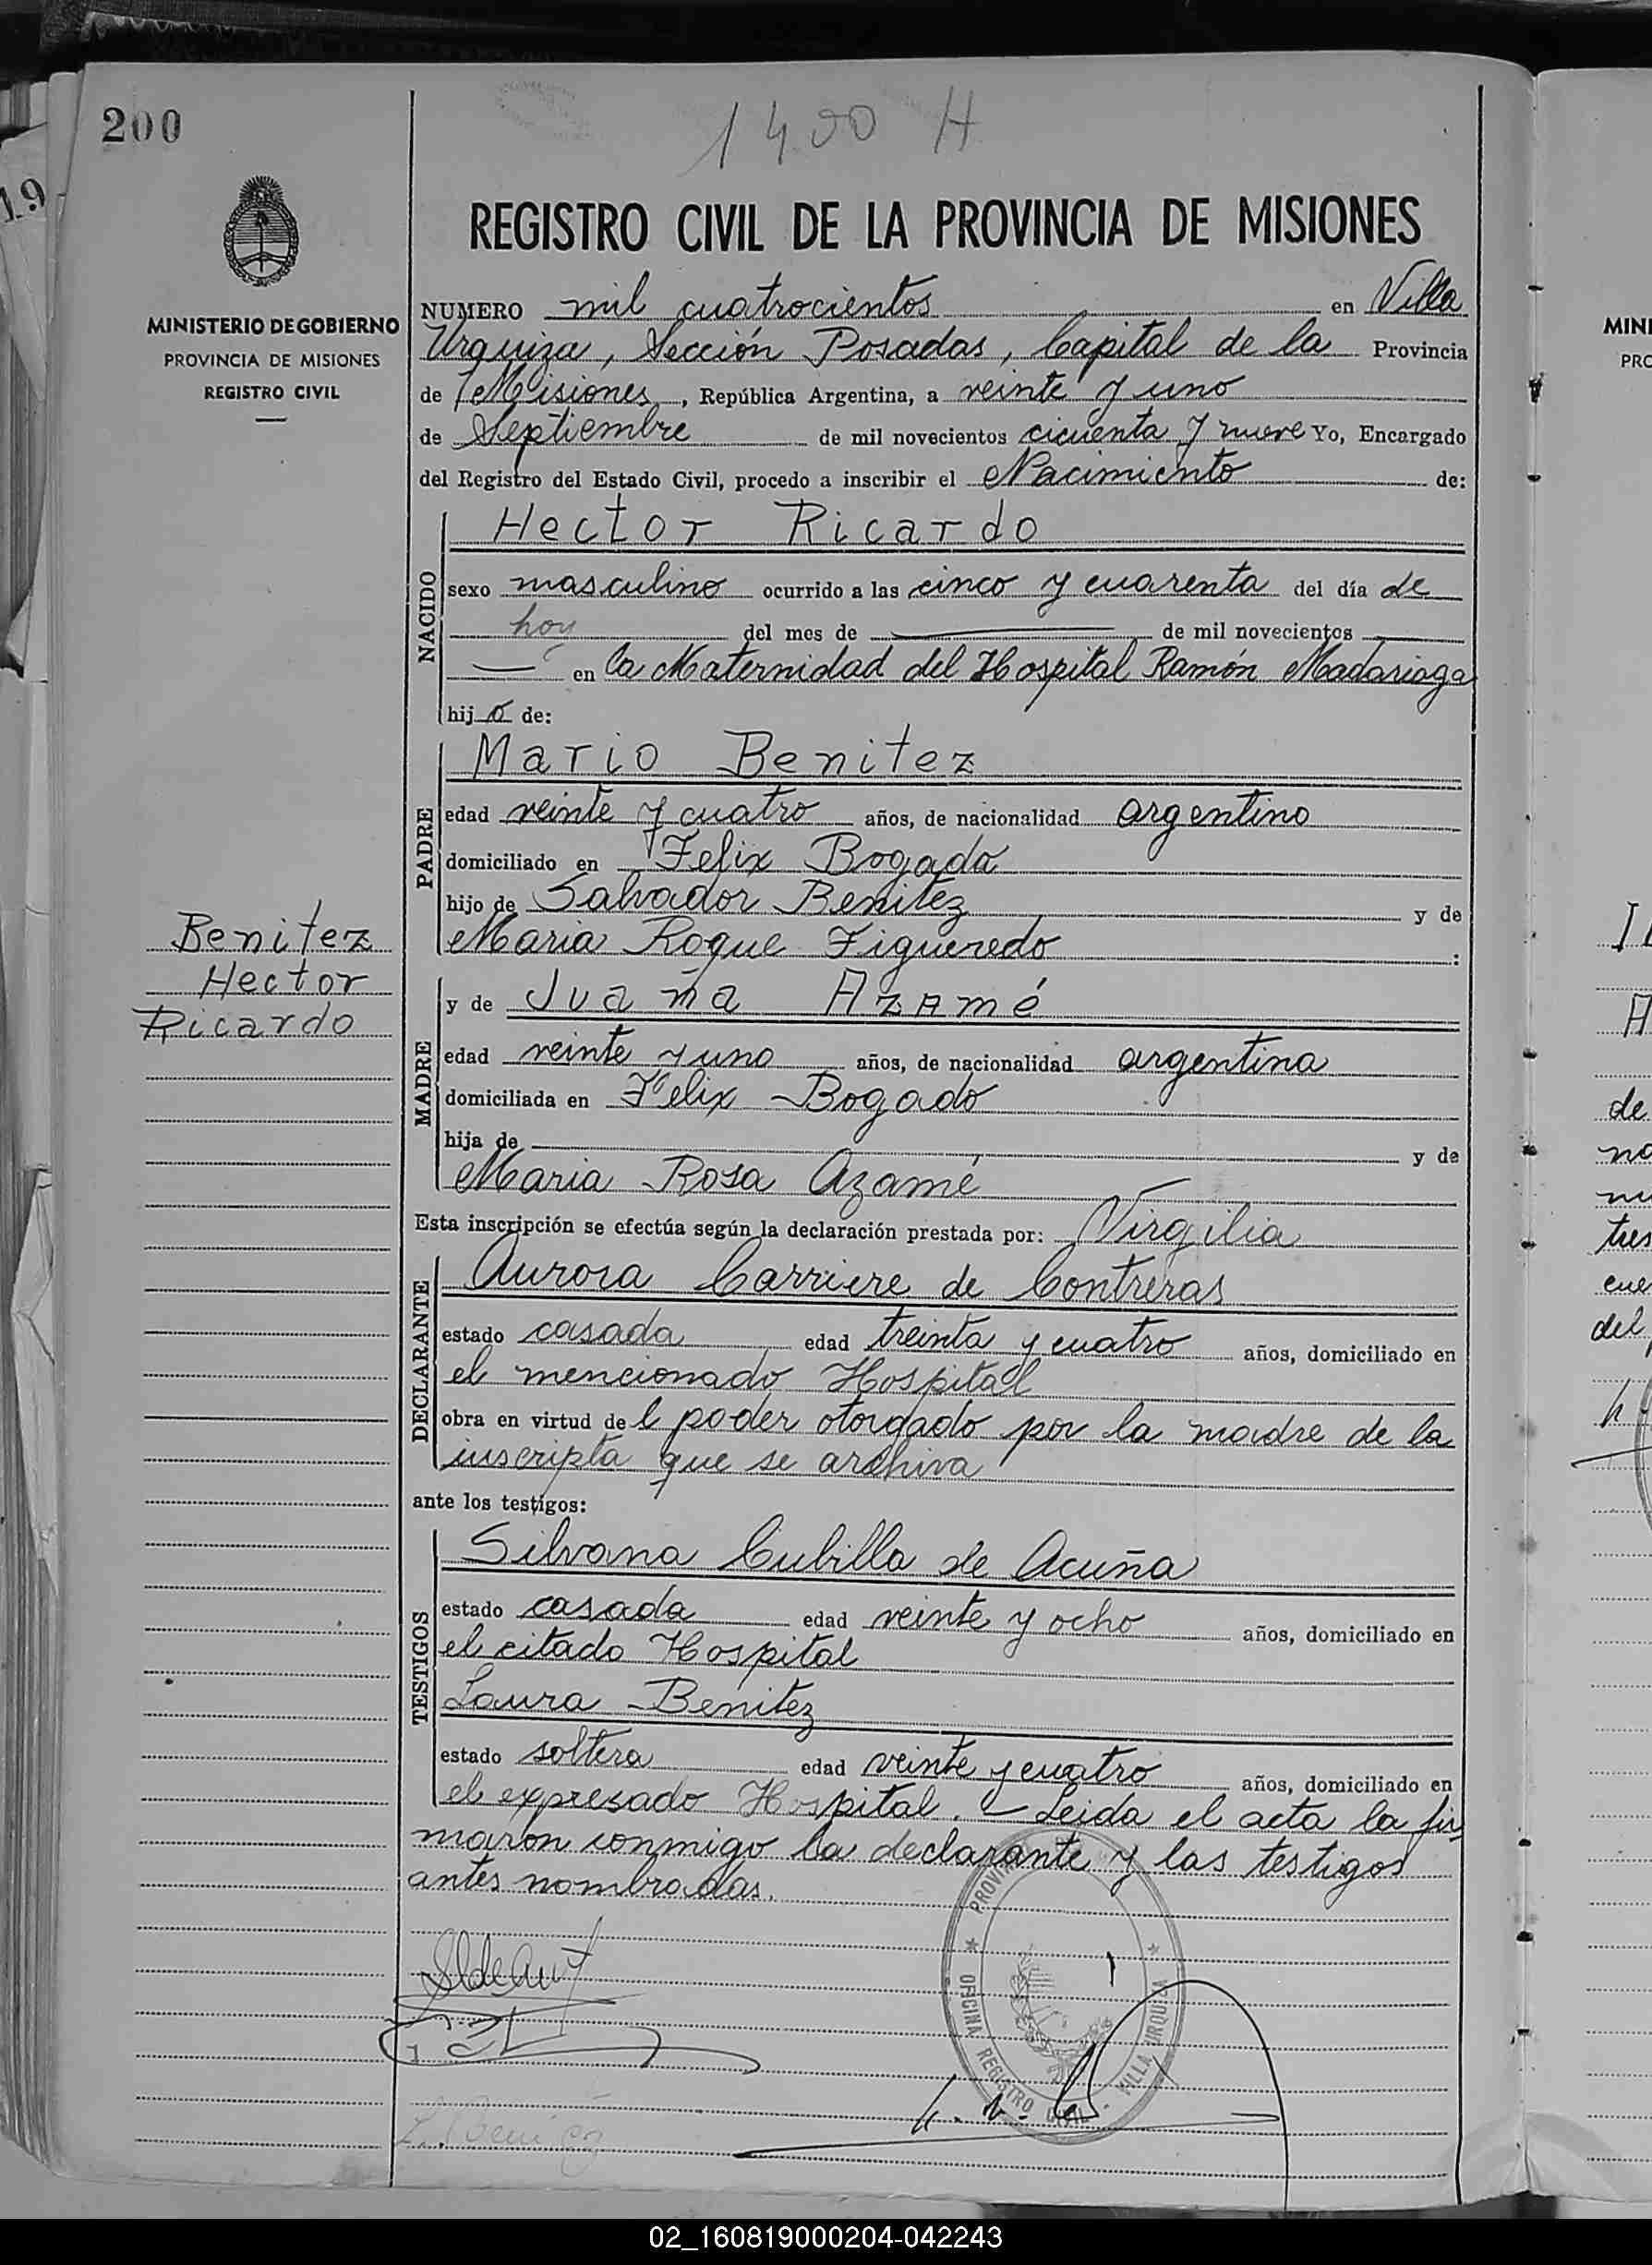 200
1400 H
19
REGISTRO CIVIL DE LA PROVINCIA DE MISIONES
MINISTERIO DE GOBIERNO
PROVINCIA DE MISIONES
REGISTRO CIVIL
NUMERO mil cuatrocientos en Villa
Urquiza, Sección Posadas, Capital de la Provincia
de Misiones, República Argentina, a veinte y uno
de Septiembre de mil novecientos cicuenta y nueve Yo, Encargado
del Registro del Estado Civil, procedo a inscribir el Nacimiento de:
NACIDO
Hector Ricardo
sexo masculino ocurrido a las cinco y cuarenta del día de
hoy del mes de — de mil novecientos —
— en la Maternidad del Hospital Ramón Madariaga
hijo de:
PADRE
Mario Benitez
edad veinte y cuatro años, de nacionalidad argentino
domiciliado en Felix Bogado
hijo de Salvador Benitez y de
Maria Roque Figueredo :
Benitez
Hector
Ricardo
MADRE
y de Juana Azamé
edad veinte y uno años, de nacionalidad argentina
domiciliada en Felix Bogado
hija de y de
Maria Rosa Azamé
Esta inscripción se efectúa según la declaración prestada por: Virgilia
DECLARANTE
Aurora Carriere de Contreras
estado casada edad treinta y cuatro años, domiciliado en
el mencionado Hospital
obra en virtud del poder otorgado por la madre de la
inscripta que se archiva
ante los testigos:
TESTIGOS
Silvana Cubilla de Acuña
estado casada edad veinte y ocho años, domiciliado en
el citado Hospital
Laura Benitez
estado soltera edad veinte y cuatro años, domiciliado en
el expresado Hospital. — Leida el acta la fir
maron conmigo la declarante y las testigos
antes nombradas.
OFICINA REGISTRO CIVIL VILLA URQUIZA
L. Benitez
MINI
PRO
de
no
tres
cue
del
02_160819000204-042243